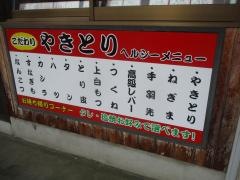 こだわり
やきとり
ヘルシーメニュー
やきとり
ねぎま
手羽先
高級レバー
つくね
上白もつ
とり皮
ハツ
カシラ
なんこつ
お持ち帰りコーナー
タレ・塩焼お好みで選べます!